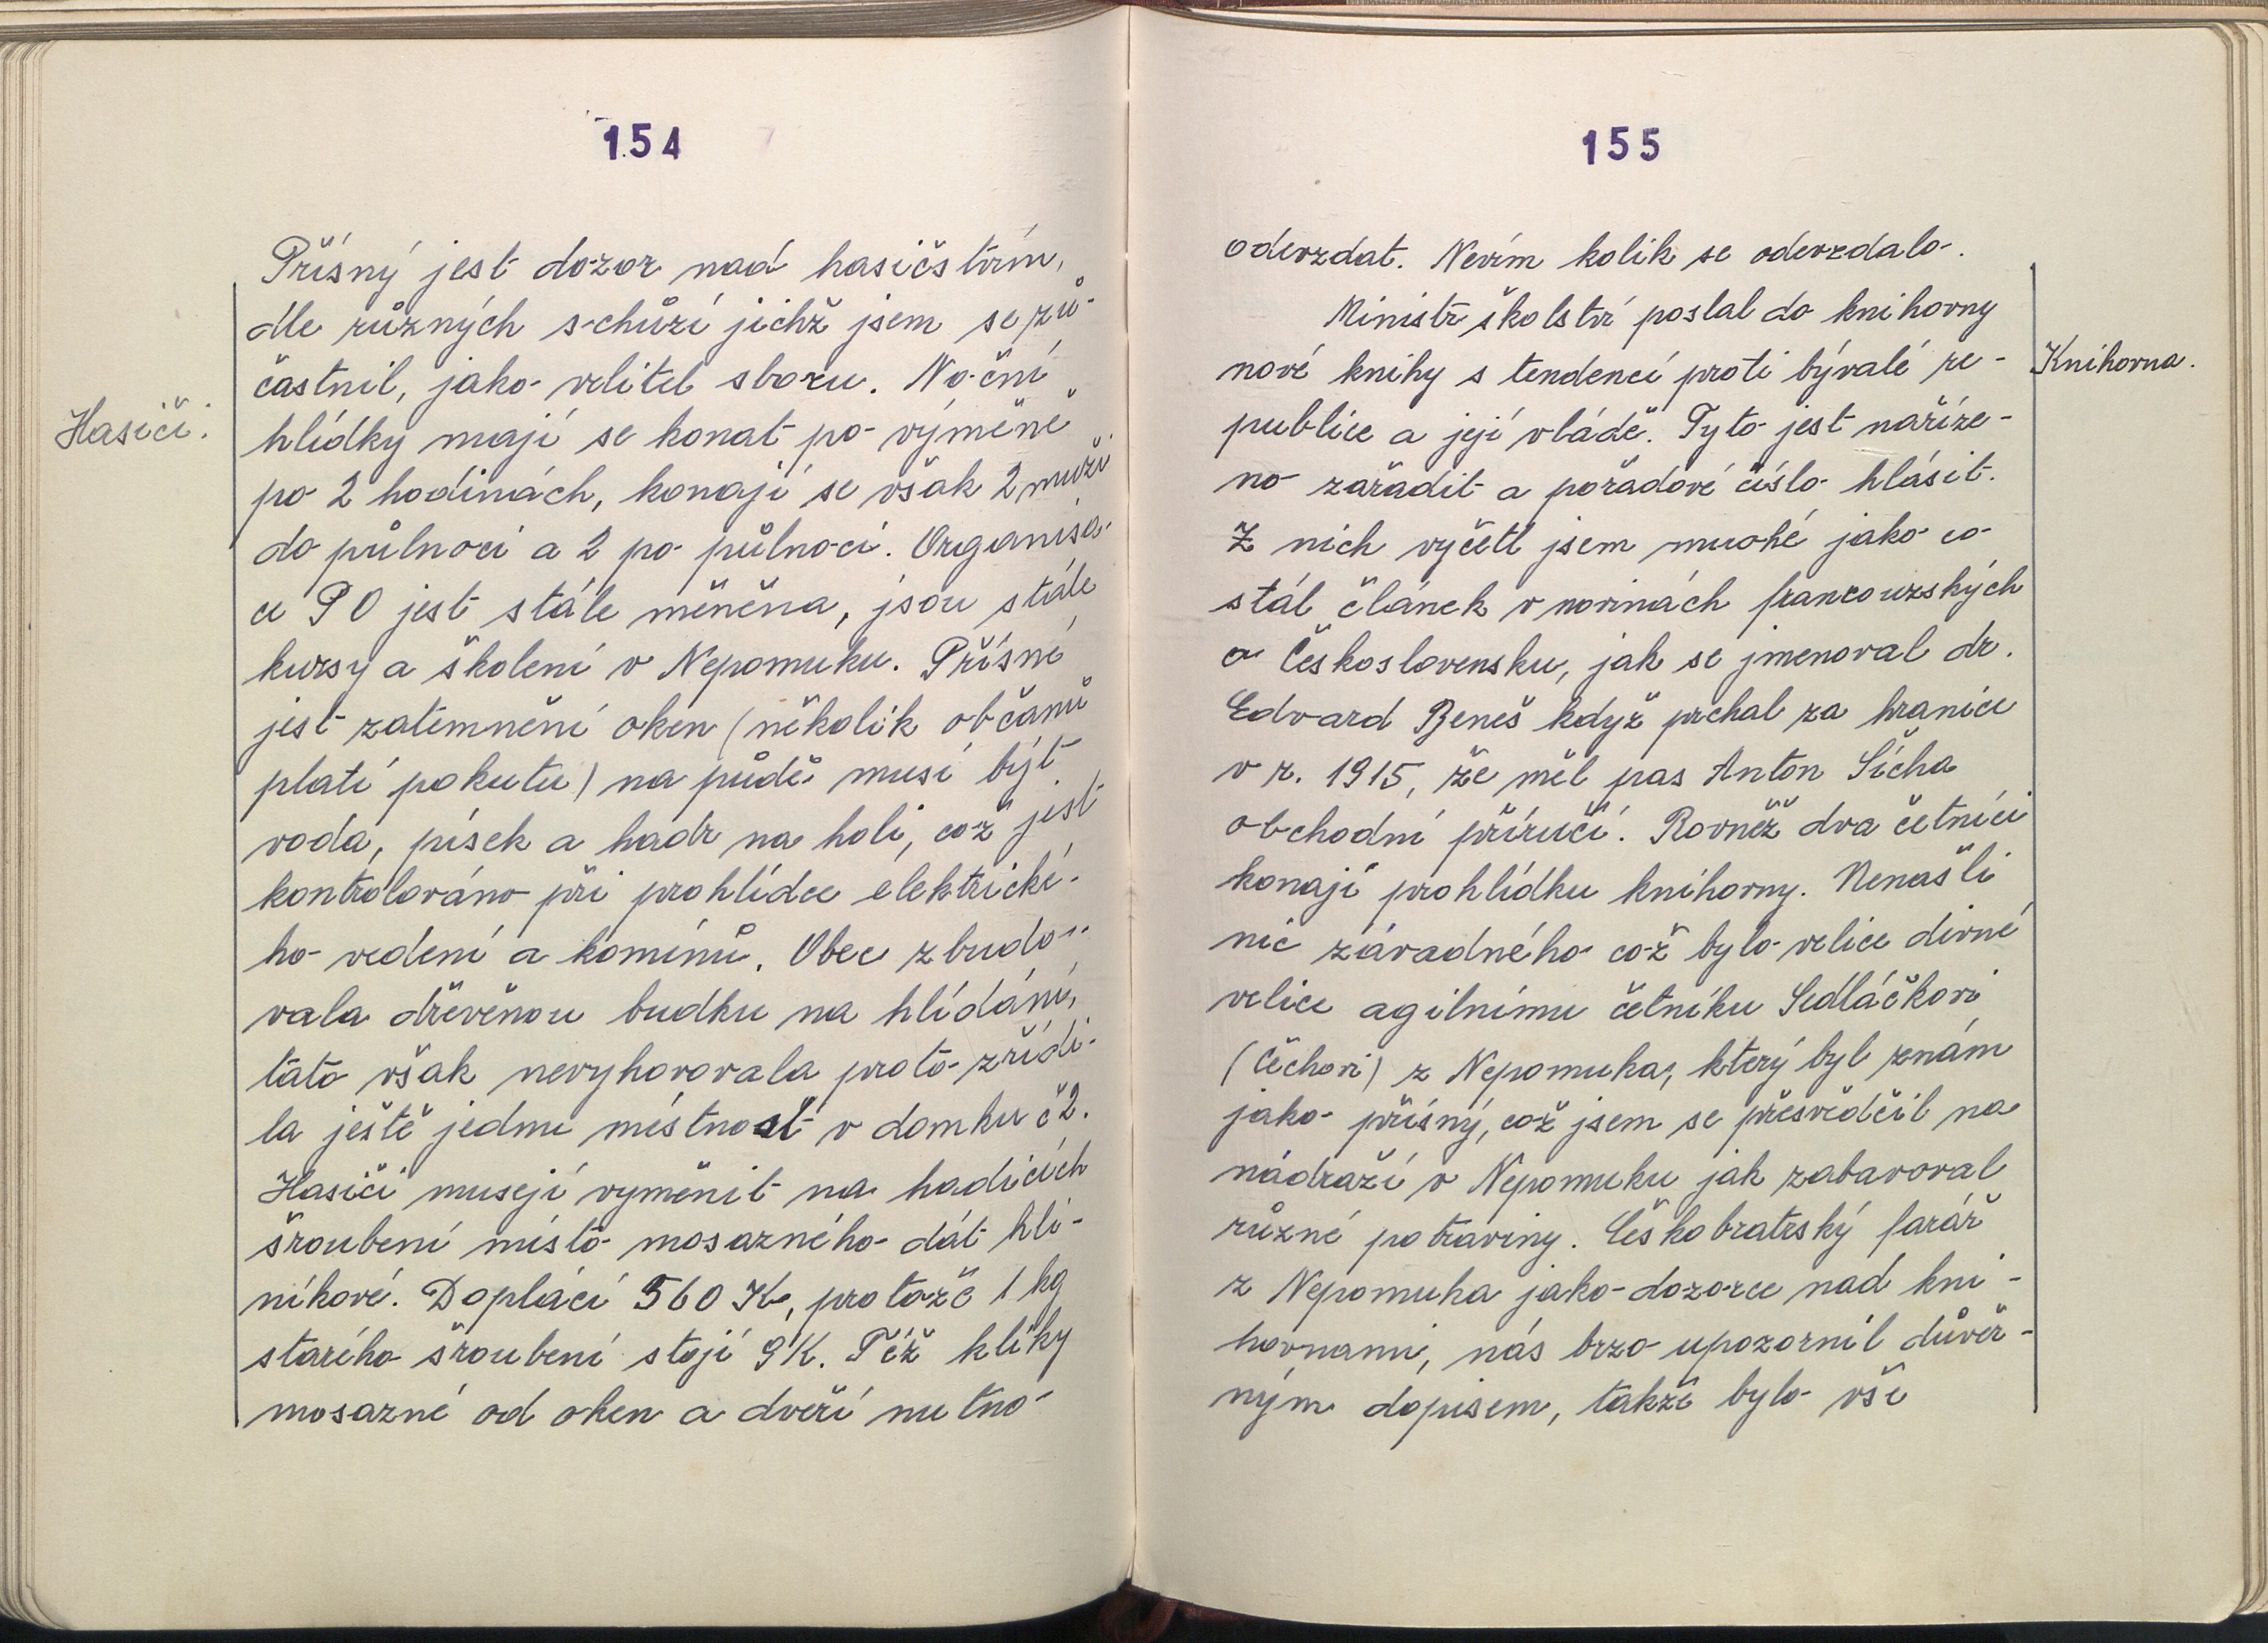 154
Přísný jest dozor nad hasičstvím,
dle různých schůzí jichž jsem se zů-
častnil, jako velitel sboru. Noční
Hasiči.
hlídky mají se konat po výměně
po 2 hodinách, konají se však 2 muži
do půlnoci a 2 po půlnoci. Organisa-
ce P O jest stále měněna, jsou stále
kursy a školení v Nepomuku. Přísné
jest zatemnění oken (několik občanů
platí pokutu) na půdě musí být
voda, písek a hadr na holi, což jest
kontrolováno při prohlídce elektrické-
ho vedení a komínů. Obec zbudo-
vala dřevěnou budku na hlídání,
tato však nevyhovovala proto zřídi-
la ještě jednu místnost v domku č 2.
Hasiči musejí vyměnit na hadicích
šroubení místo mosazného dát hli-
níkové. Doplácí 560 K, protože 1 kg
starého šroubení stojí 9 K. Též kliky
mosazné od oken a dveří nutno
155
odevzdat. Nevím kolik se odevzdalo.
Ministr školství poslal do knihovny
nové knihy s tendencí proti bývalé re-
Knihovna.
publice a její vládě. Tyto jest naříze-
no zařadit a pořadové číslo hlásit.
Z nich vyčetl jsem mnohé jako co
stál článek v novinách francouzských
o Československu, jak se jmenoval dr.
Edvard Beneš když prchal za hranice
v r. 1915, že měl pas Anton Sícha
obchodní příručí. Rovněž dva četníci
konají prohlídku knihovny. Nenašli
nic závadného což bylo velice divné
velice agilnímu četníku Sedláčkovi
(Čechovi) z Nepomuka, který byl znám
jako přísný, což jsem se přesvědčil na
nádraží v Nepomuku jak zabavoval
různé potraviny. Českobratrský farář
z Nepomuka jako dozorce nad kni-
hovnami, nás brzo upozornil důvěr-
ným dopisem, takže bylo vše